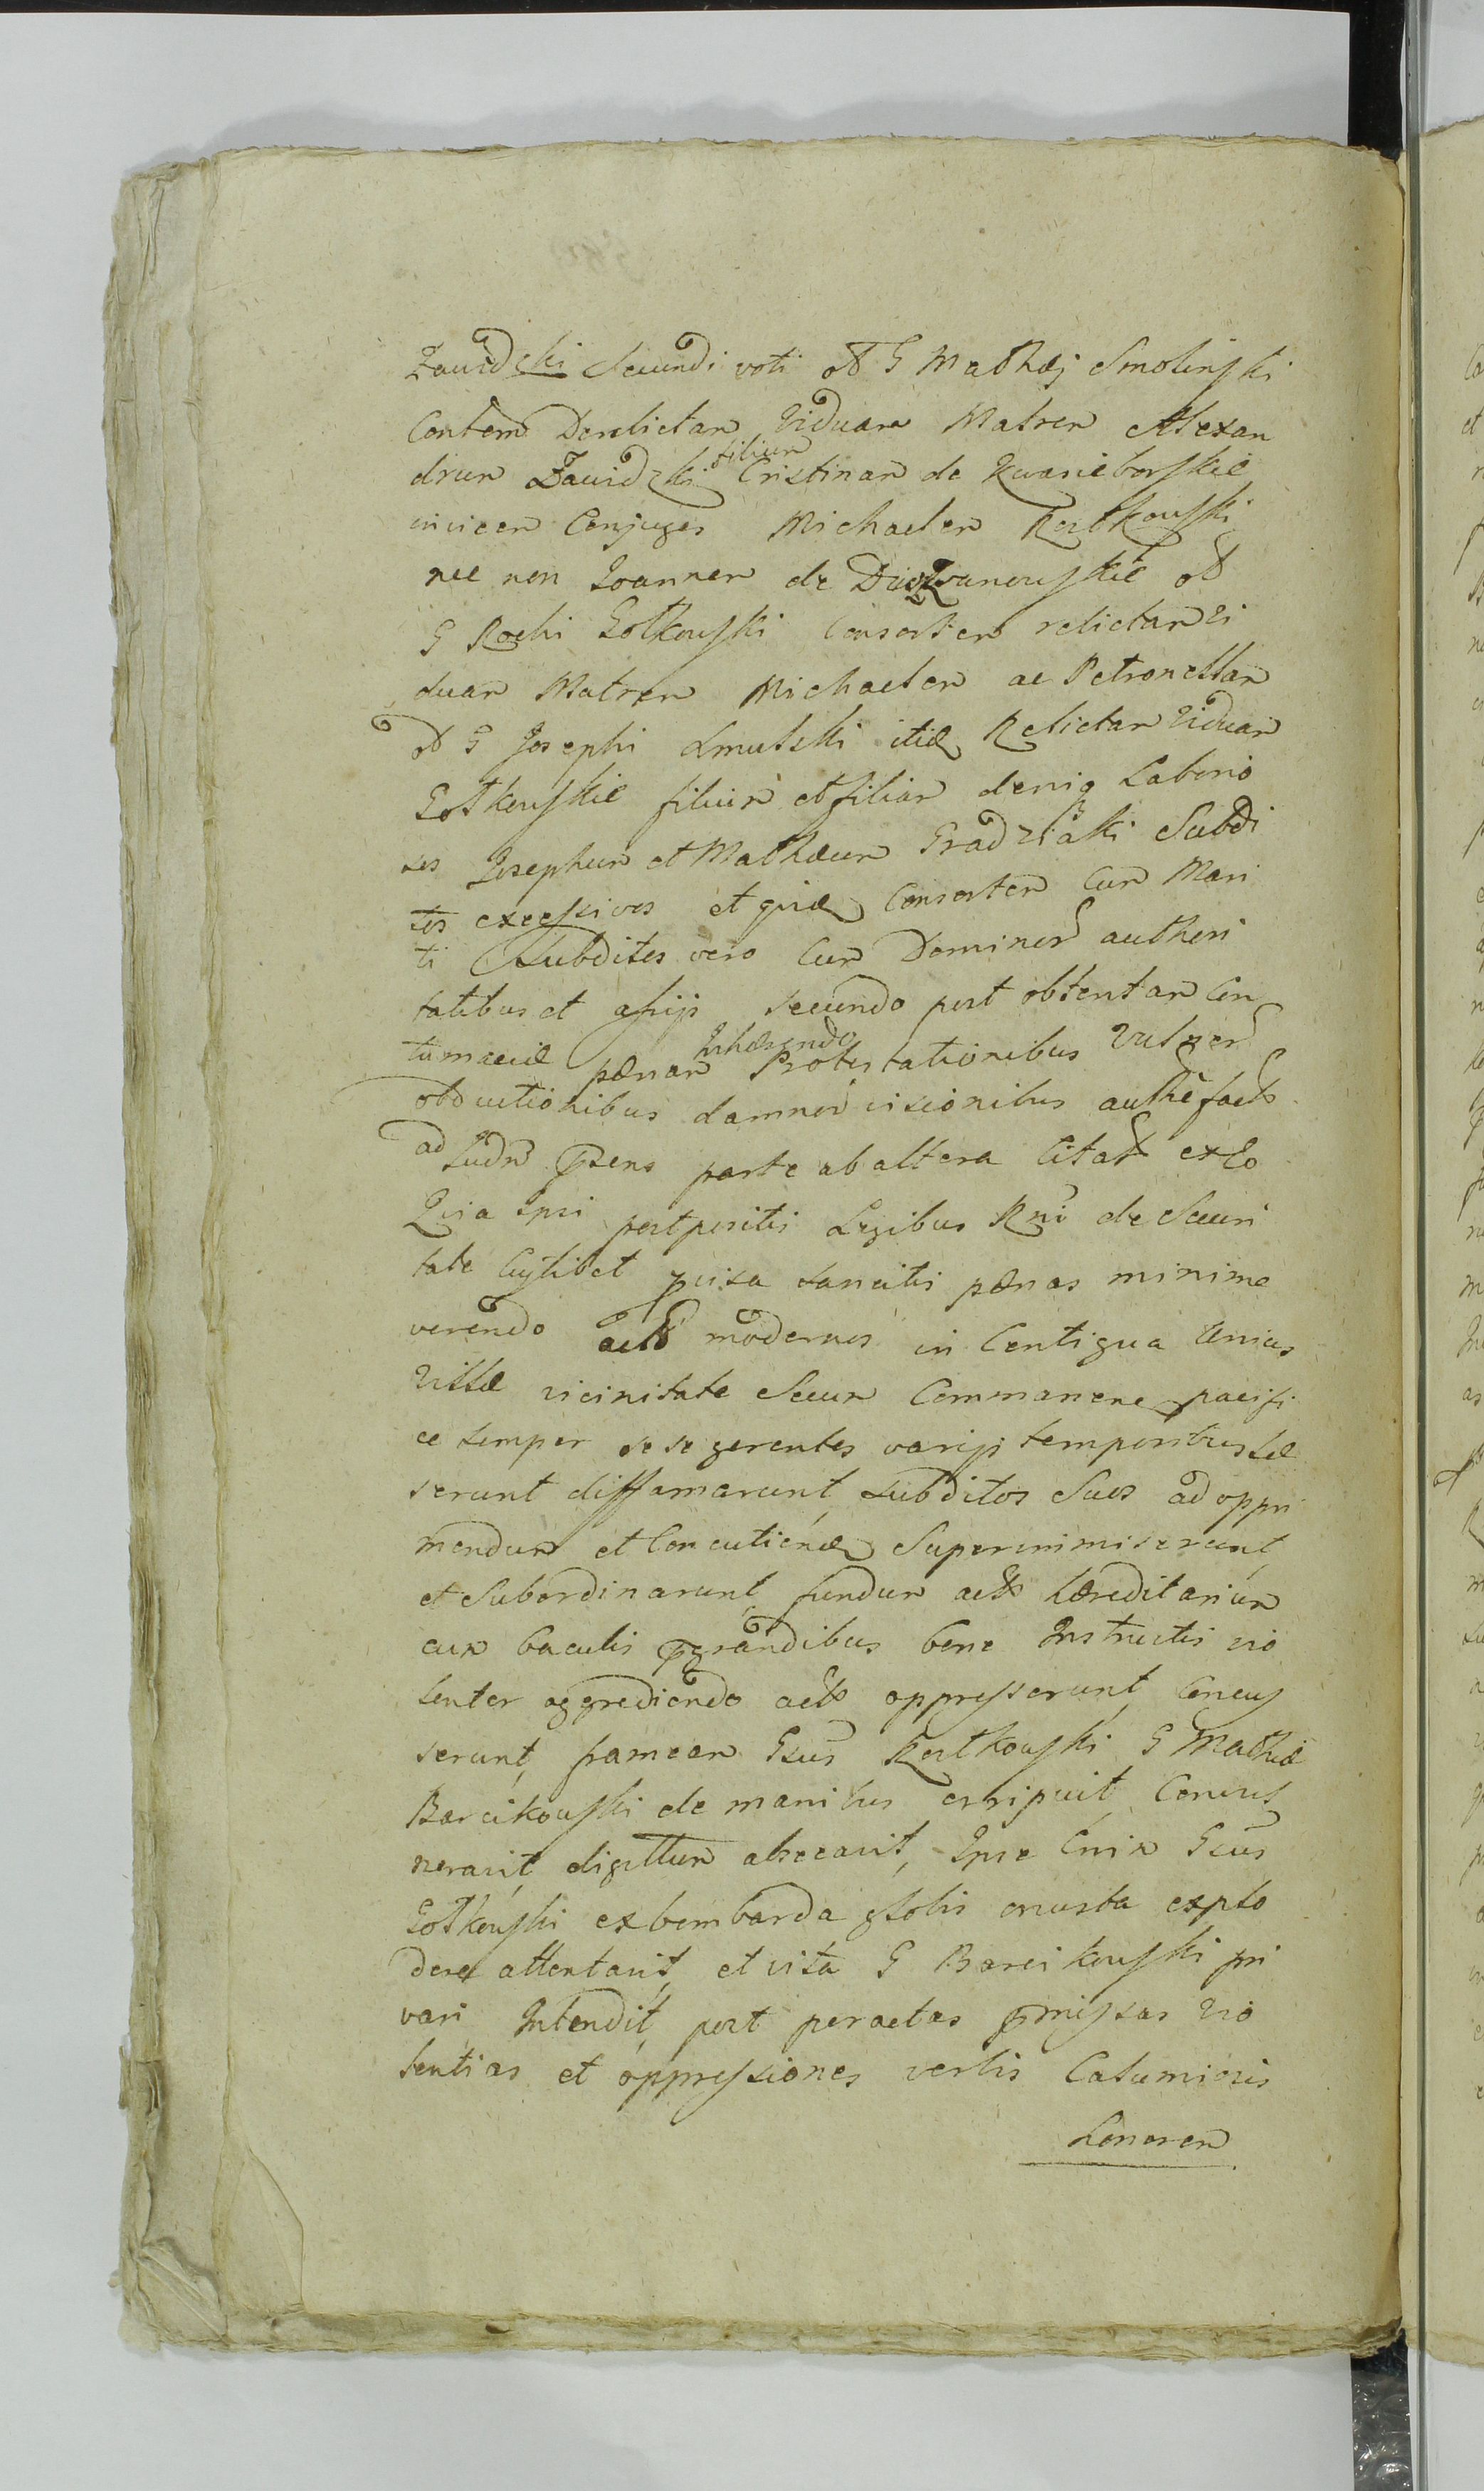 Zawidzki Secundi voti olt G Mathæj Smolinski
Contem Derelictam Viduam Matrem Alexan
drum Zawidzki filium Cristinam de Kwasieborskie
invicem Conjuges Michaelem Rostkowski
nec non Joannem de olt
G Rochi Gotkowski Consortem relictam vi
duam Matrem Michaelem ac Petronellam
olt G Josephi Smulski itid Relictam Viduam
Gotkowskie filium et filiam deniq Laborio
sos Josephum et Mathæum Gradziaki Subdi
tos excessivos et quid Consortem Cum Mari
ti Subditos vero Cum Dominor authori
tatibus et assijs secundo post obtentam Con
tumaciæ pænam Inhærendo Protestationibus Vulner
obductionibus damnor visionibus authe factis
ad Judm psens parte ab altera Citat ex Eo
Quia Ipsi postpositis Legibus Rni de Securi
tate Cujlibet sancitis pænas minime
verendo act modernos in Contigua Unius
Villæ vicinitate Secum Commanene pacifi
ce semper se se gerentes varijs temporibus læ
serunt diffamarunt subditos Suos ad oppri
mendum et Concutiend Superinmiserunt
et Subordinarunt fundum act hæreditarium
cum baculis pgrandibus bene Instructis vio
lenter aggrediendo act oppresserunt Concus
serunt, frameam Gsus Rostkowski G Mathiæ
Barcikowski de manibus erripuit Convul
neravit, digittum absecavit, Ipse Gsus
Gotkowski ex bombarda globis onusta explo
dere attentavit, et vita G Barcikowski pri
vari Intendit, post peractas pmissas vio
lentias et oppressiones verbis Calumiosis
honorem